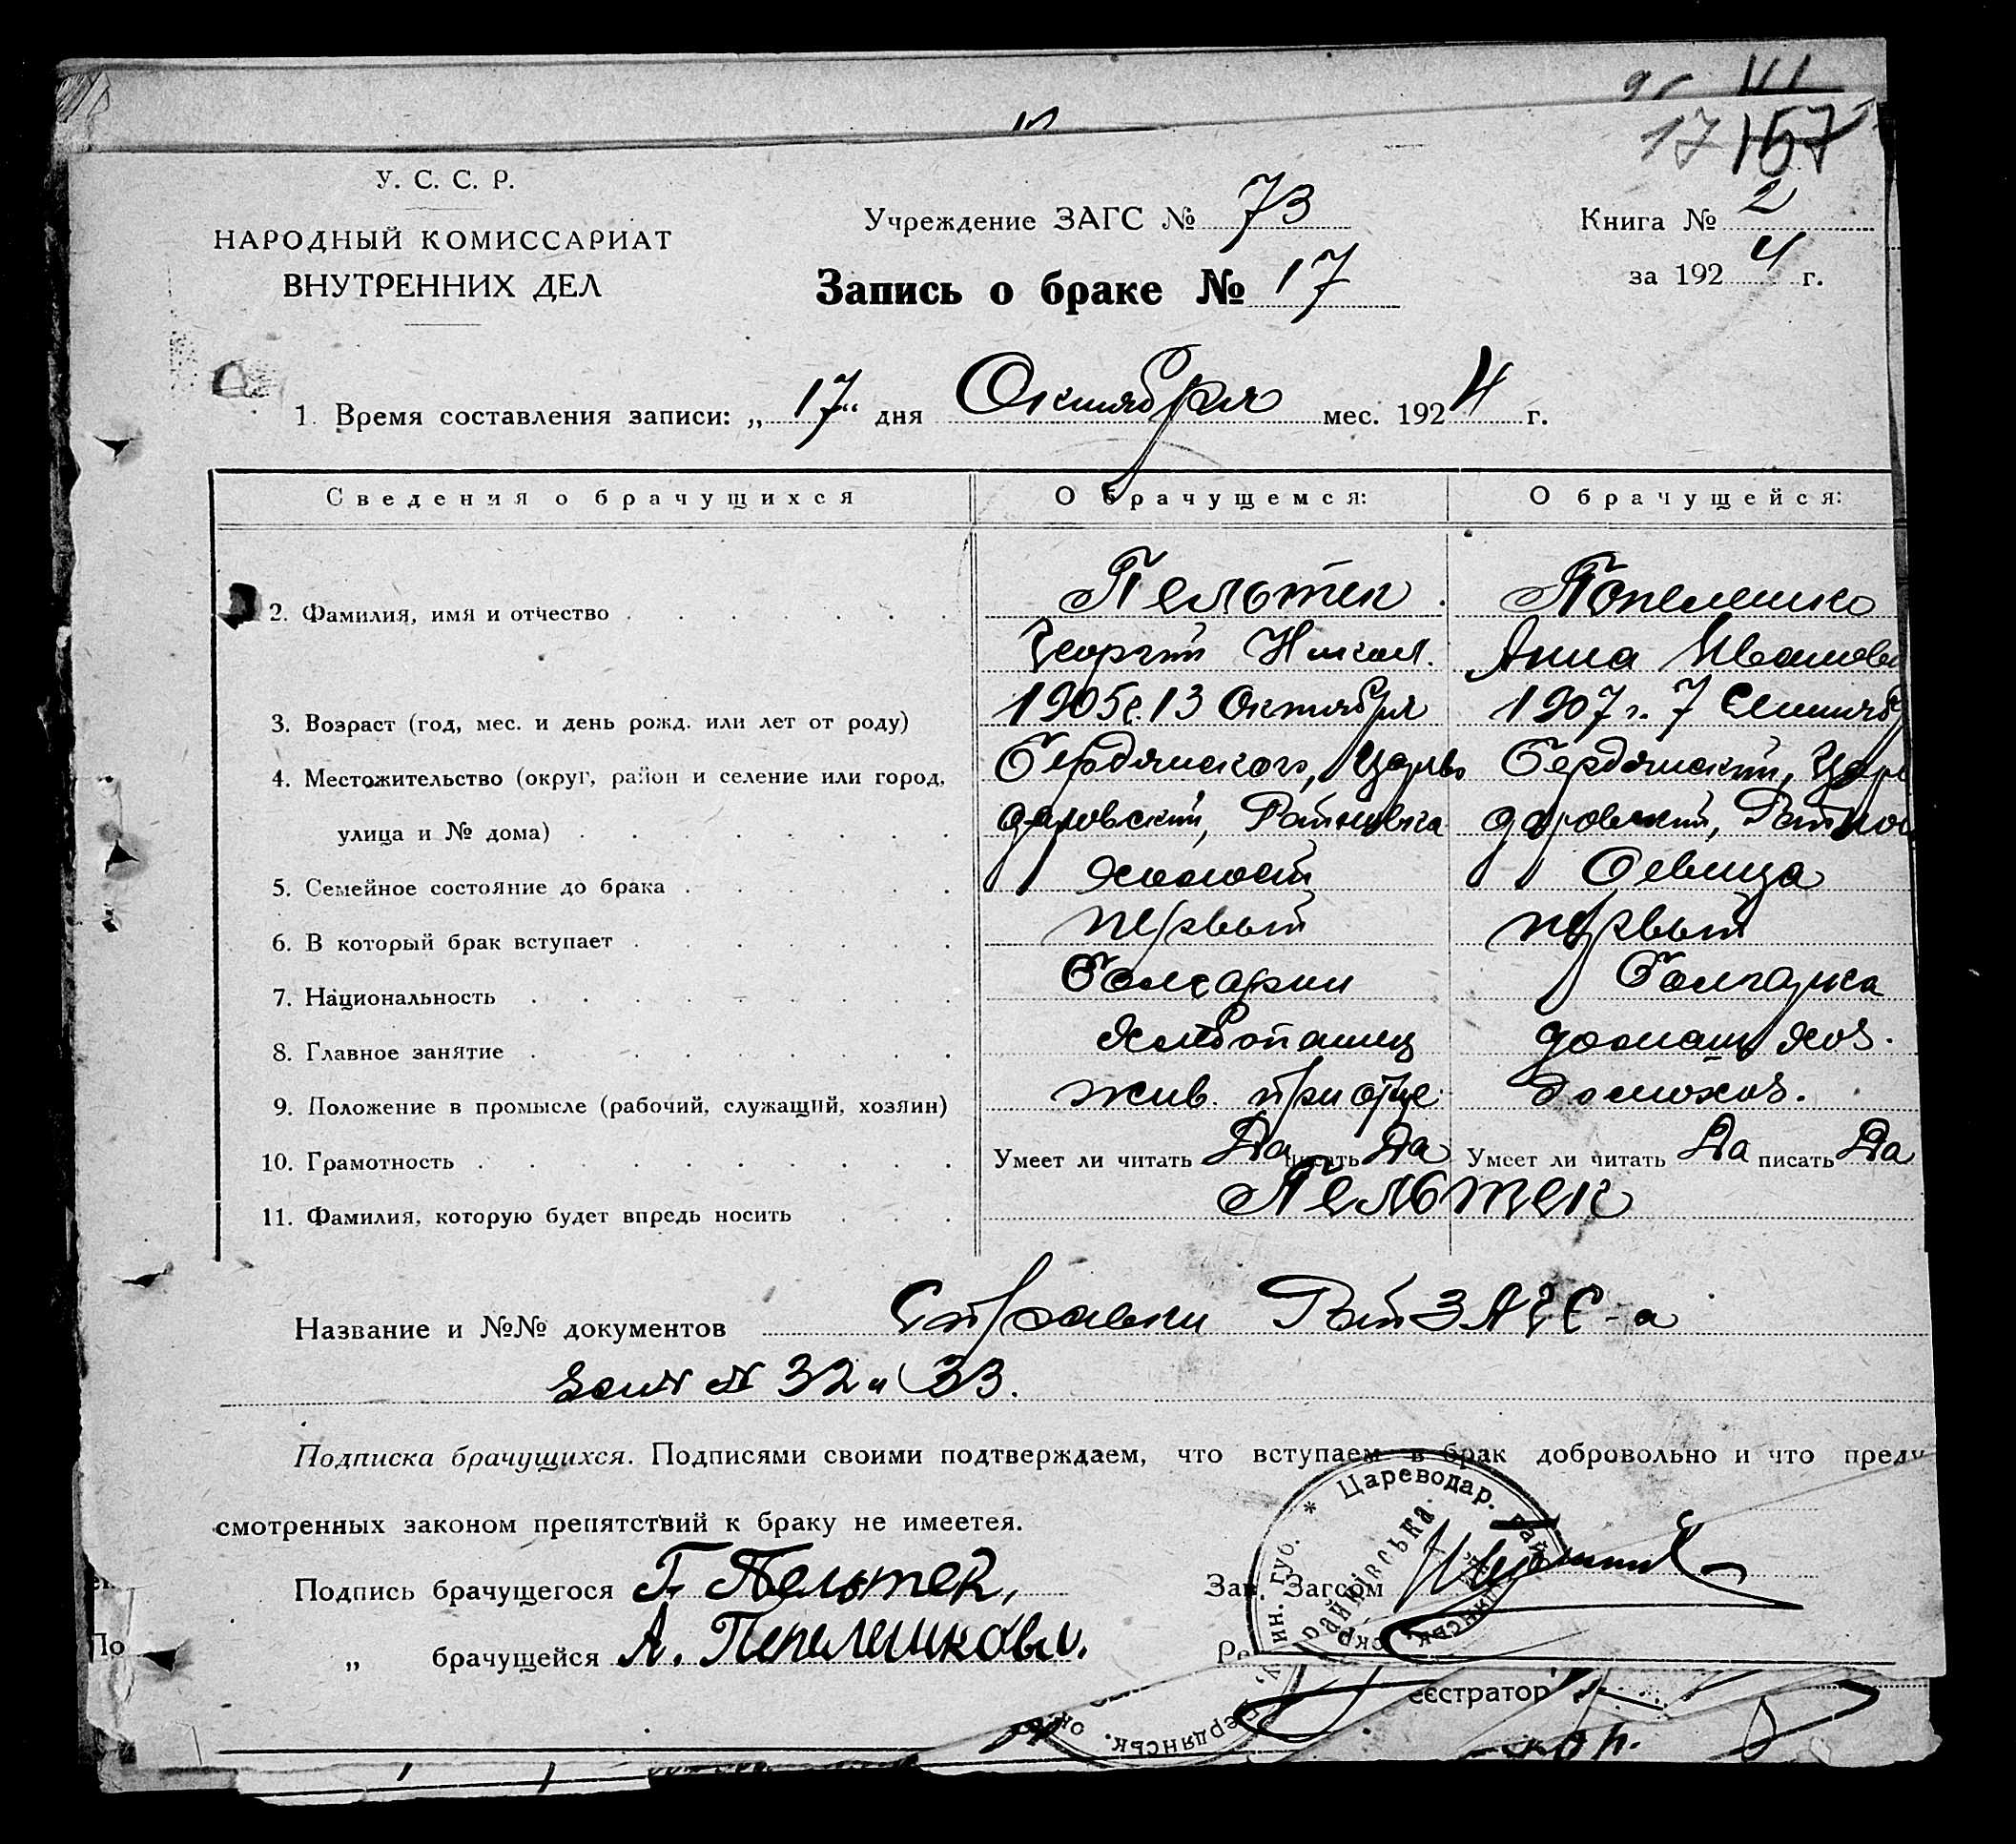 17 157
У. С. С. Р.
НАРОДНЫЙ КОМИССАРИАТ
ВНУТРЕННИХ ДЕЛ
Учреждение ЗАГС № 73
Книга № 2
Запись о браке № 17
за 1924 г.
1. Время составления записи: „17“ дня Октября мес. 1924 г.
Сведения о брачущихся О брачущемся: О брачущейся:
2. Фамилия, имя и отчество Пельтек Попелешко
Георгий Никол. Анна Иванова
3. Возраст (год, мес. и день рожд. или лет от роду) 1905г. 13 Октября 1907 г. 7 Сентяб
4. Местожительство (округ, район и селение или город, Бердянского, Царево Бердянский, Царе
улица и № дома) даровский, Райновка даровский, Райнов
5. Семейное состояние до брака холост девица
6. В который брак вступает первый первый
7. Национальность болгарин болгарка
8. Главное занятие хлебопашец домаш хоз.
9. Положение в промысле (рабочий, служащий, хозяин) жив. при отце домохоз.
10. Грамотность Умеет ли читать Да писать Да Умеет ли читать Да писать Да
11. Фамилия, которую будет впредь носить Пельтек
Название и №№ документов Справки РайЗАГС-а
№ 32 и 33.
Подписка брачущихся. Подписями своими подтверждаем, что вступаем в брак добровольно и что преду
смотренных законом препятствий к браку не имеется.
Подпись брачущегося Г. Пельтек,
Зав. Загсом
„ брачущейся А. Пепелешкова.
Ре
еєстратор
* Цареводар. рай
ин. губ.
Райнівська
Бердянськ. ок